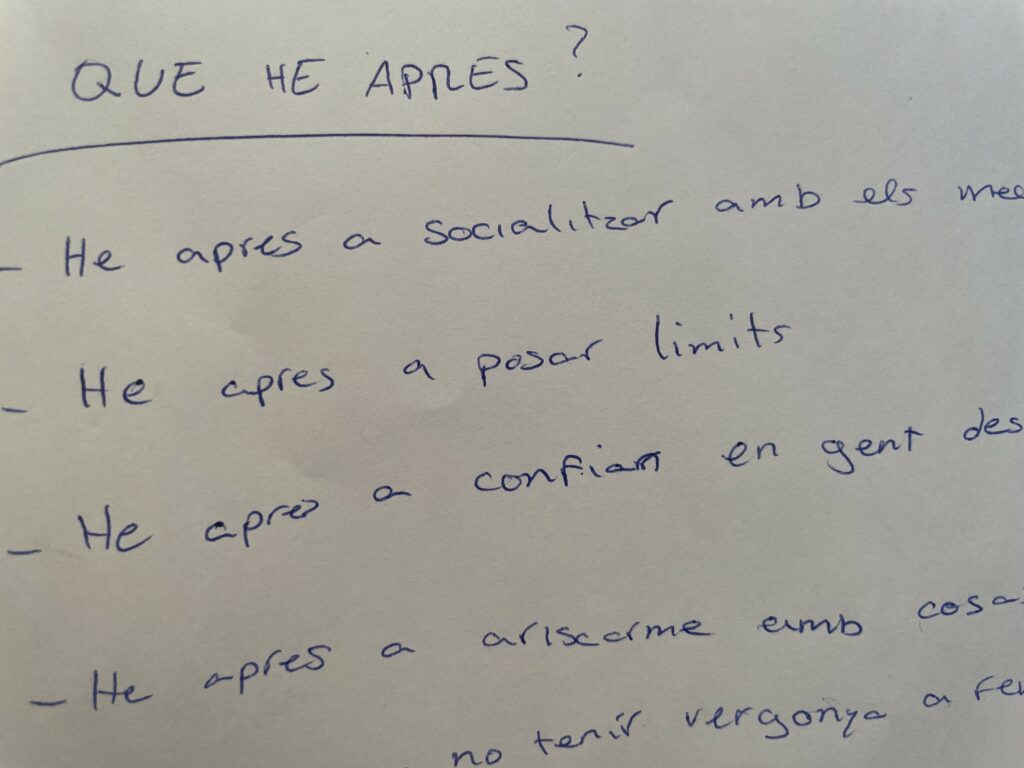 QUE HE APRES ?
- He apres a socialitzar amb els
- He apres a posar limits
- He apres a confiar en gent
- He apres a ariscarme amb
no tenir vergonya a